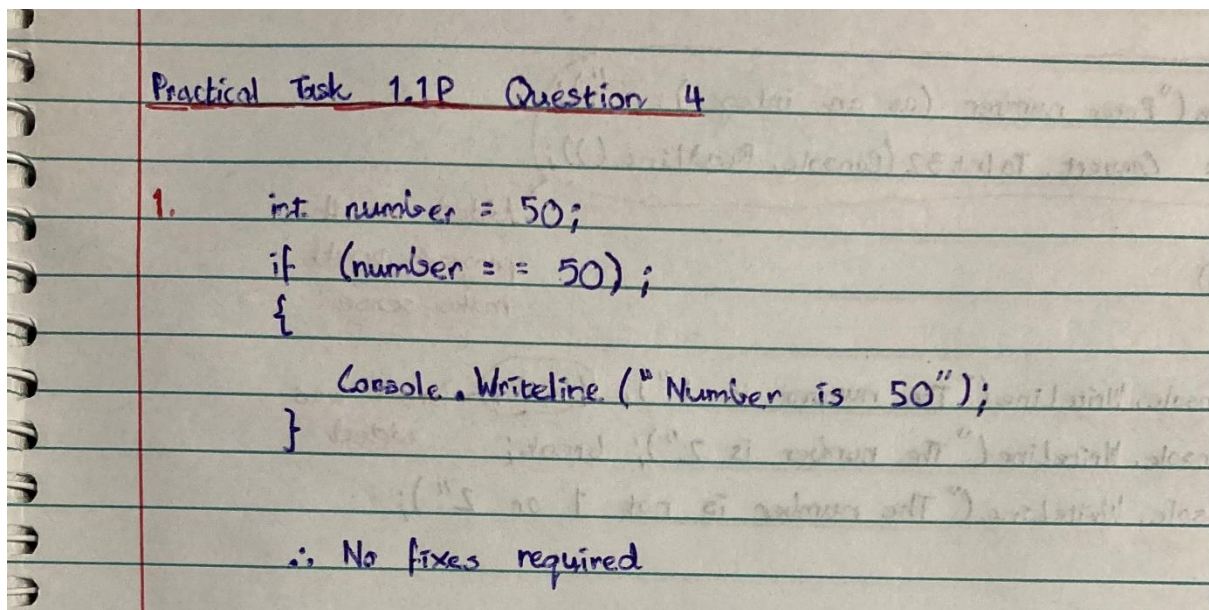 Practical Task 1.1P Question 4
1. int number = 50;
if (number = = 50);
{
Console.Writeline ("Number is 50");
}
∴ No fixes required